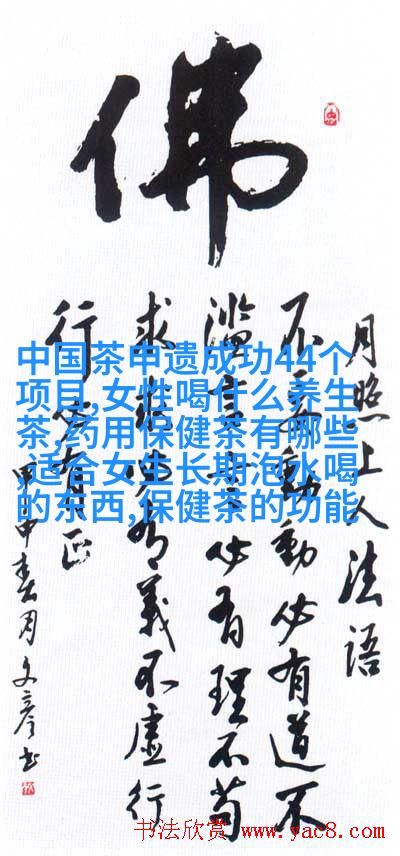 佛
月照上人法語
不妄動動必有道不
必有理不苟
求求必有義不虛行
行必有正
甲申春月文彥书
中国茶申遗成功44个
项目,女性喝什么养生
茶,药用保健茶有哪些
,适合女生长期泡水喝
的东西,保健茶的功能
书法欣赏 www.yac8.com